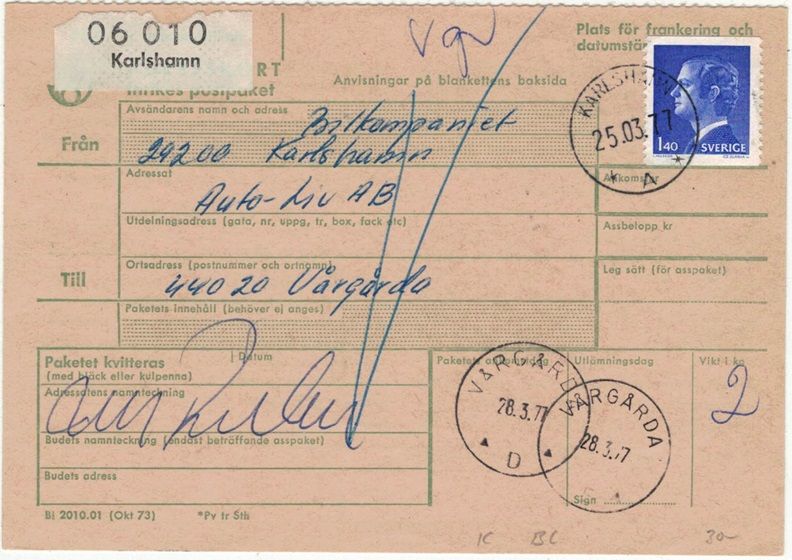 06 010
Karlshamn
RT
Inrikes postpaket
Vga
Anvisningar på blankettens baksida
Plats för frankering och
datumstä
KARLSHAMN
25.03.77
A
1,40 SVERIGE
Från
Avsändarens namn och adress
Bilkompaniet
29200 Karlshamn
Adressat
Auto-Liv AB
Ankomstnr
Utdelningsadress (gata, nr, uppg, tr, box, fack etc)
Assbelopp kr
Till
Ortsadress (postnummer och ortnamn)
44020 Vårgårda
Leg sätt (för asspaket)
Paketets innehåll (behöver ej anges)
Paketet kvitteras
(med bläck eller kulpenna)
Datum
Paketets ankomstdag
Utlämningsdag
Vikt i kg
2
Adressatens namnteckning
VÅRGÅRDA
28.3.77
D
VÅRGÅRDA
28.3.77
Budets namnteckning (endast beträffande asspaket)
Budets adress
Sign
Bl 2010.01 (Okt 73) *Pv tr Sth
K BC 30-